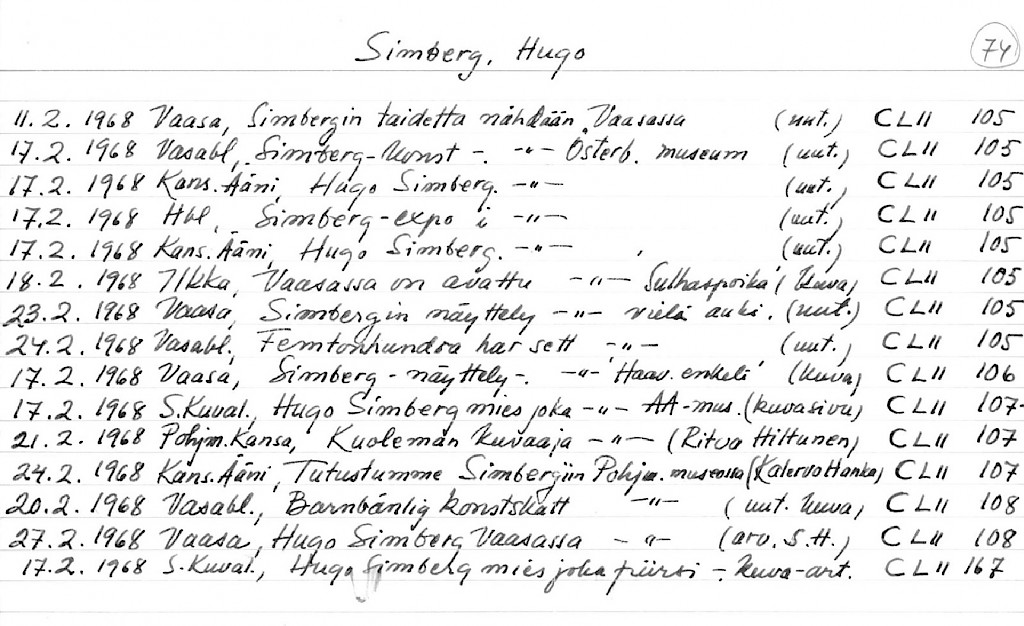 Simberg, Hugo
74
11.2.1968 Vaasa, Simbergin taidetta nähdään Vaasassa (uut.) CLII 105
17.2.1968 Vasabl., Simberg-konst -. -"- Österb. museum (uut.) CLII 105
17.2.1968 Kans.Ääni, Hugo Simberg. -"- (uut.) CLII 105
17.2.1968 Hbl, Simberg-expo i -"- (uut.) CLII 105
17.2.1968 Kans.Ääni, Hugo Simberg. -"- (uut.) CLII 105
18.2.1968 Ilkka, Vaasassa on avattu -"- 'Sulhaspoika' (kuva) CLII 105
23.2.1968 Vaasa, Simbergin näyttely -"- vielä auki. (uut.) CLII 105
24.2.1968 Vasabl., Femtonhundra har sett -"- (uut.) CLII 105
17.2.1968 Vaasa, Simberg-näyttely-. -"- 'Haav. enkeli' (kuva) CLII 106
17.2.1968 S.Kuval., Hugo Simberg mies joka -"- AA-mus. (kuvasivu) CLII 107-
21.2.1968 Pohjm.Kansa, Kuoleman kuvaaja -"- (Ritva Hiltunen) CLII 107
24.2.1968 Kans.Ääni, Tutustumme Simbergiin Pohjm. museossa (Kalervo Hanka) CLII 107
20.2.1968 Vasabl., Barnbänlig konstskatt -"- (uut. kuva) CLII 108
27.2.1968 Vaasa, Hugo Simberg Vaasassa -"- (arv. S.H.) CLII 108
17.2.1968 S.Kuval., Hugo Simberg mies joka piirsi -. kuva-art. CLII 167